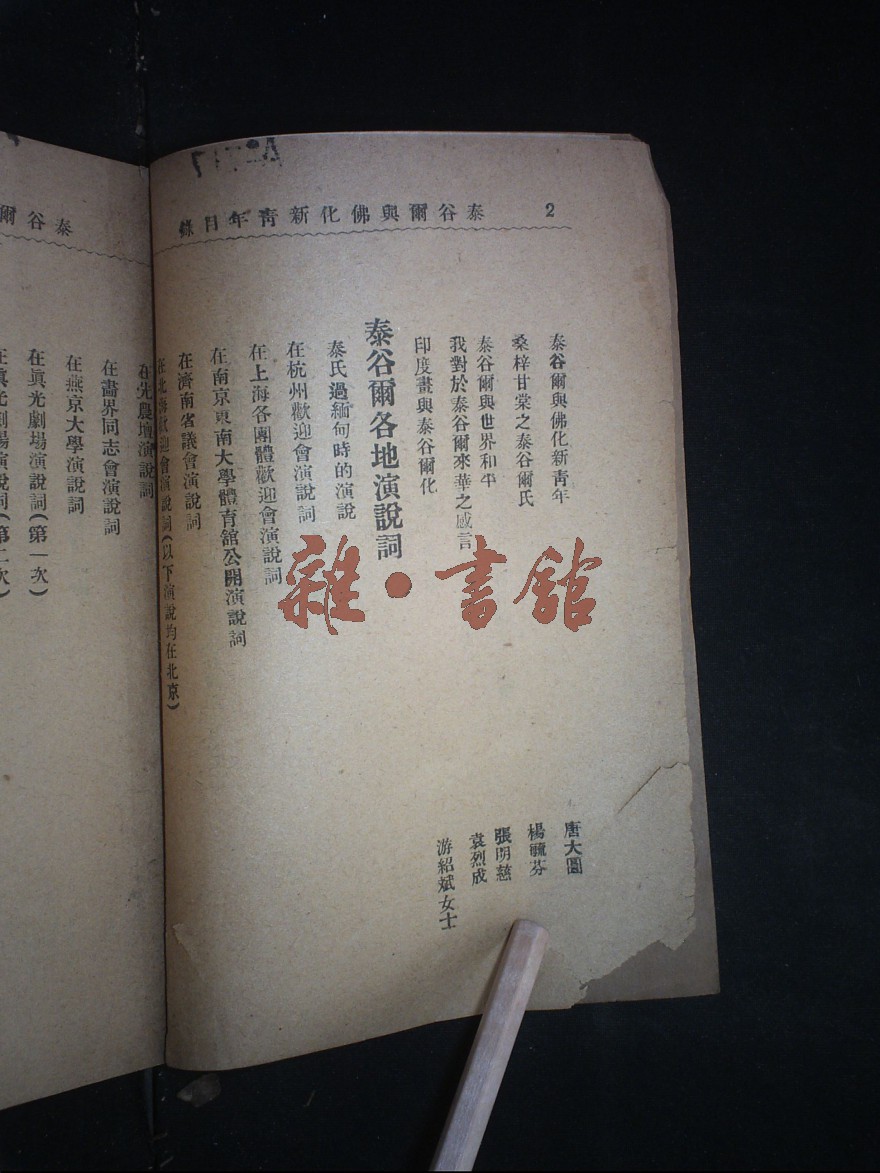 2 泰谷爾與佛化新靑年目錄
泰谷爾與佛化新靑年 唐大圓
桑梓甘棠之泰谷爾氏 楊毓芬
泰谷爾與世界和平 張明慈
我對於泰谷爾來華之感言 袁烈成
印度畫與泰谷爾化 游紹斌女士
泰谷爾各地演說詞
泰氏過緬甸時的演說
在杭州歡迎會演說詞
在上海各團體歡迎會演說詞
在南京東南大學體育舘公開演說詞
在濟南省議會演說詞
在北海歡迎會演說詞(以下演說均在北京)
在先農壇演說詞
在畵界同志會演說詞
在燕京大學演說詞
在眞光劇場演說詞(第一次)
在眞光劇場演說詞(第二次)
泰谷爾
雜·書舘